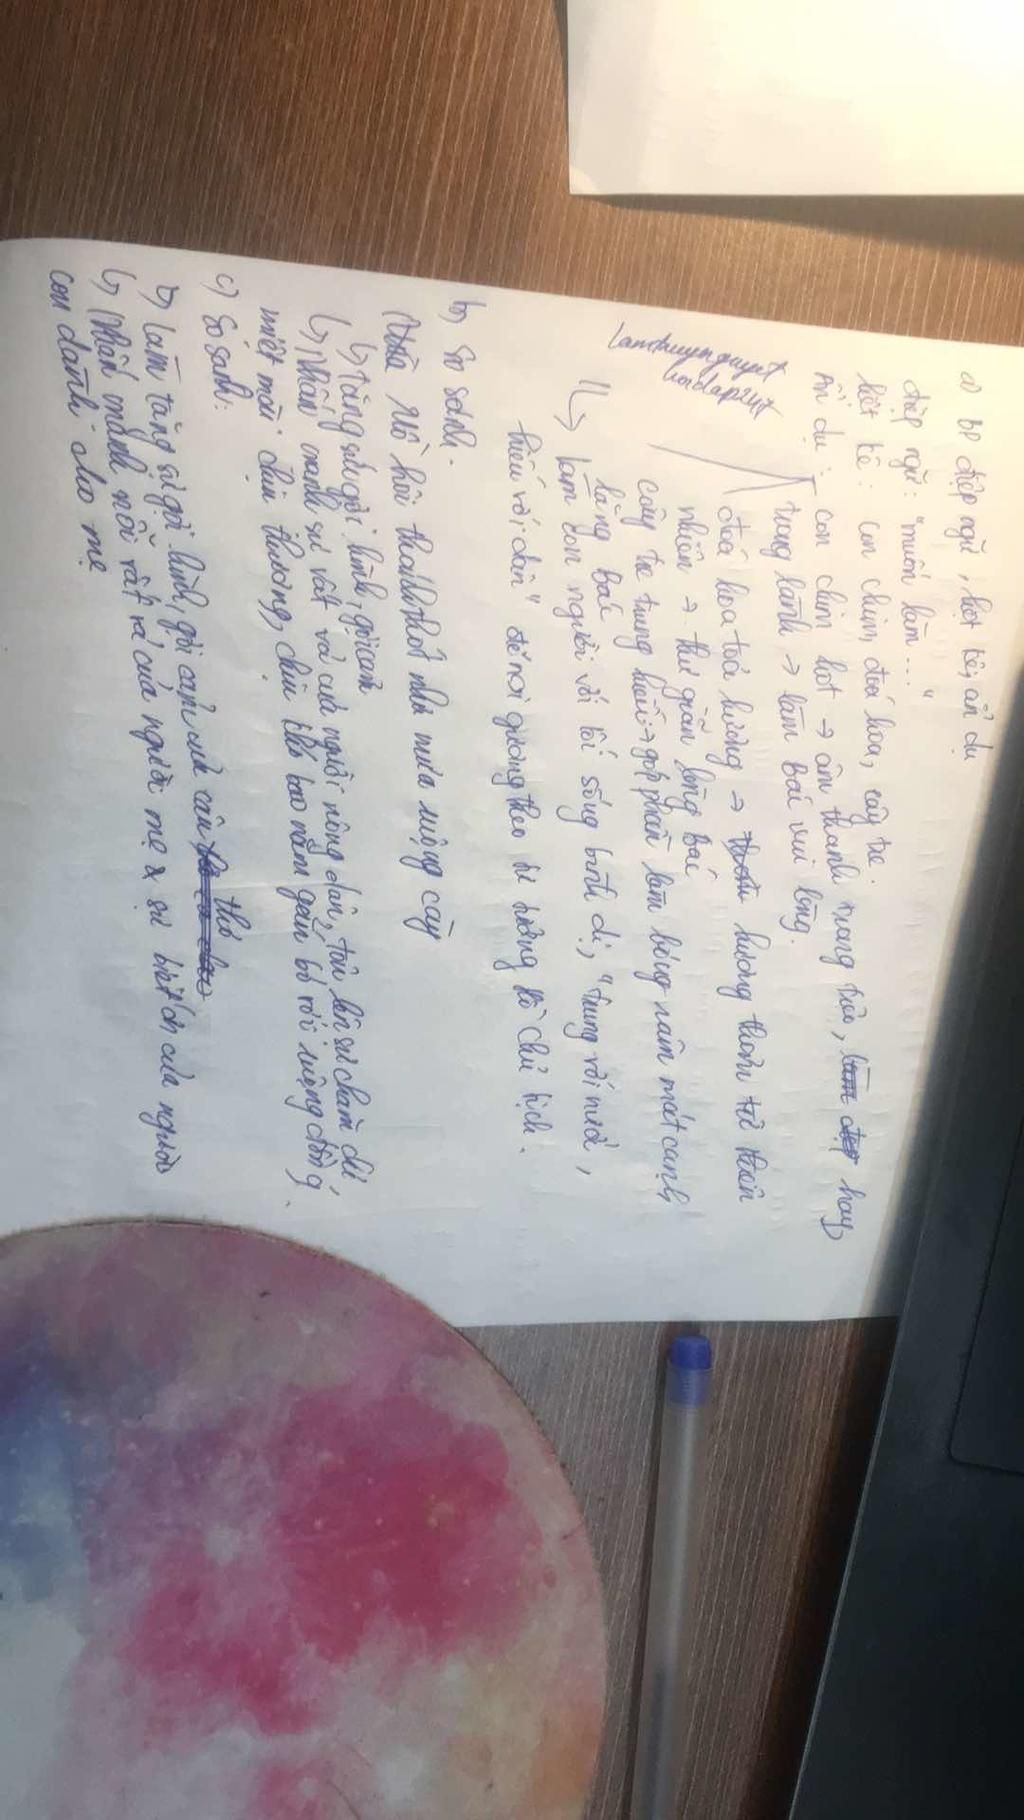 a) BP điệp ngữ, liệt kê, ẩn dụ
điệp ngữ: "muốn làm..."
liệt kê: con chim, đoá hoa, cây tre.
Ẩn dụ: - con chim hót → âm thanh trong trẻo, hay,
trong lành → làm Bác vui lòng.
đoá hoa toả hương → hương thơm từ thiên
nhiên → thư giãn lòng Bác
cây tre trung hiếu → góp phần làm bóng râm mát cạnh
lăng Bác
↳ làm con người với lối sống bình dị, "trung với nước,
hiếu với dân" để noi gương theo tư tưởng Hồ Chủ tịch.
lamtuyenguyet
hoidap247
b) So sánh.
Mồ hôi thánh thót như mưa ruộng cày
↳ tăng sức gợi hình, gợi cảm
↳ Nhấn mạnh sự vất vả của người nông dân, tôn lên sự chăm chỉ,
miệt mài, chịu thương, chịu khó bao năm gắn bó với ruộng đồng.
c) So sánh:
↳ Làm tăng sự gợi hình, gợi cảm của câu thơ
↳ Nhấn mạnh nỗi vất vả của người mẹ & sự biết ơn của người
con dành cho mẹ